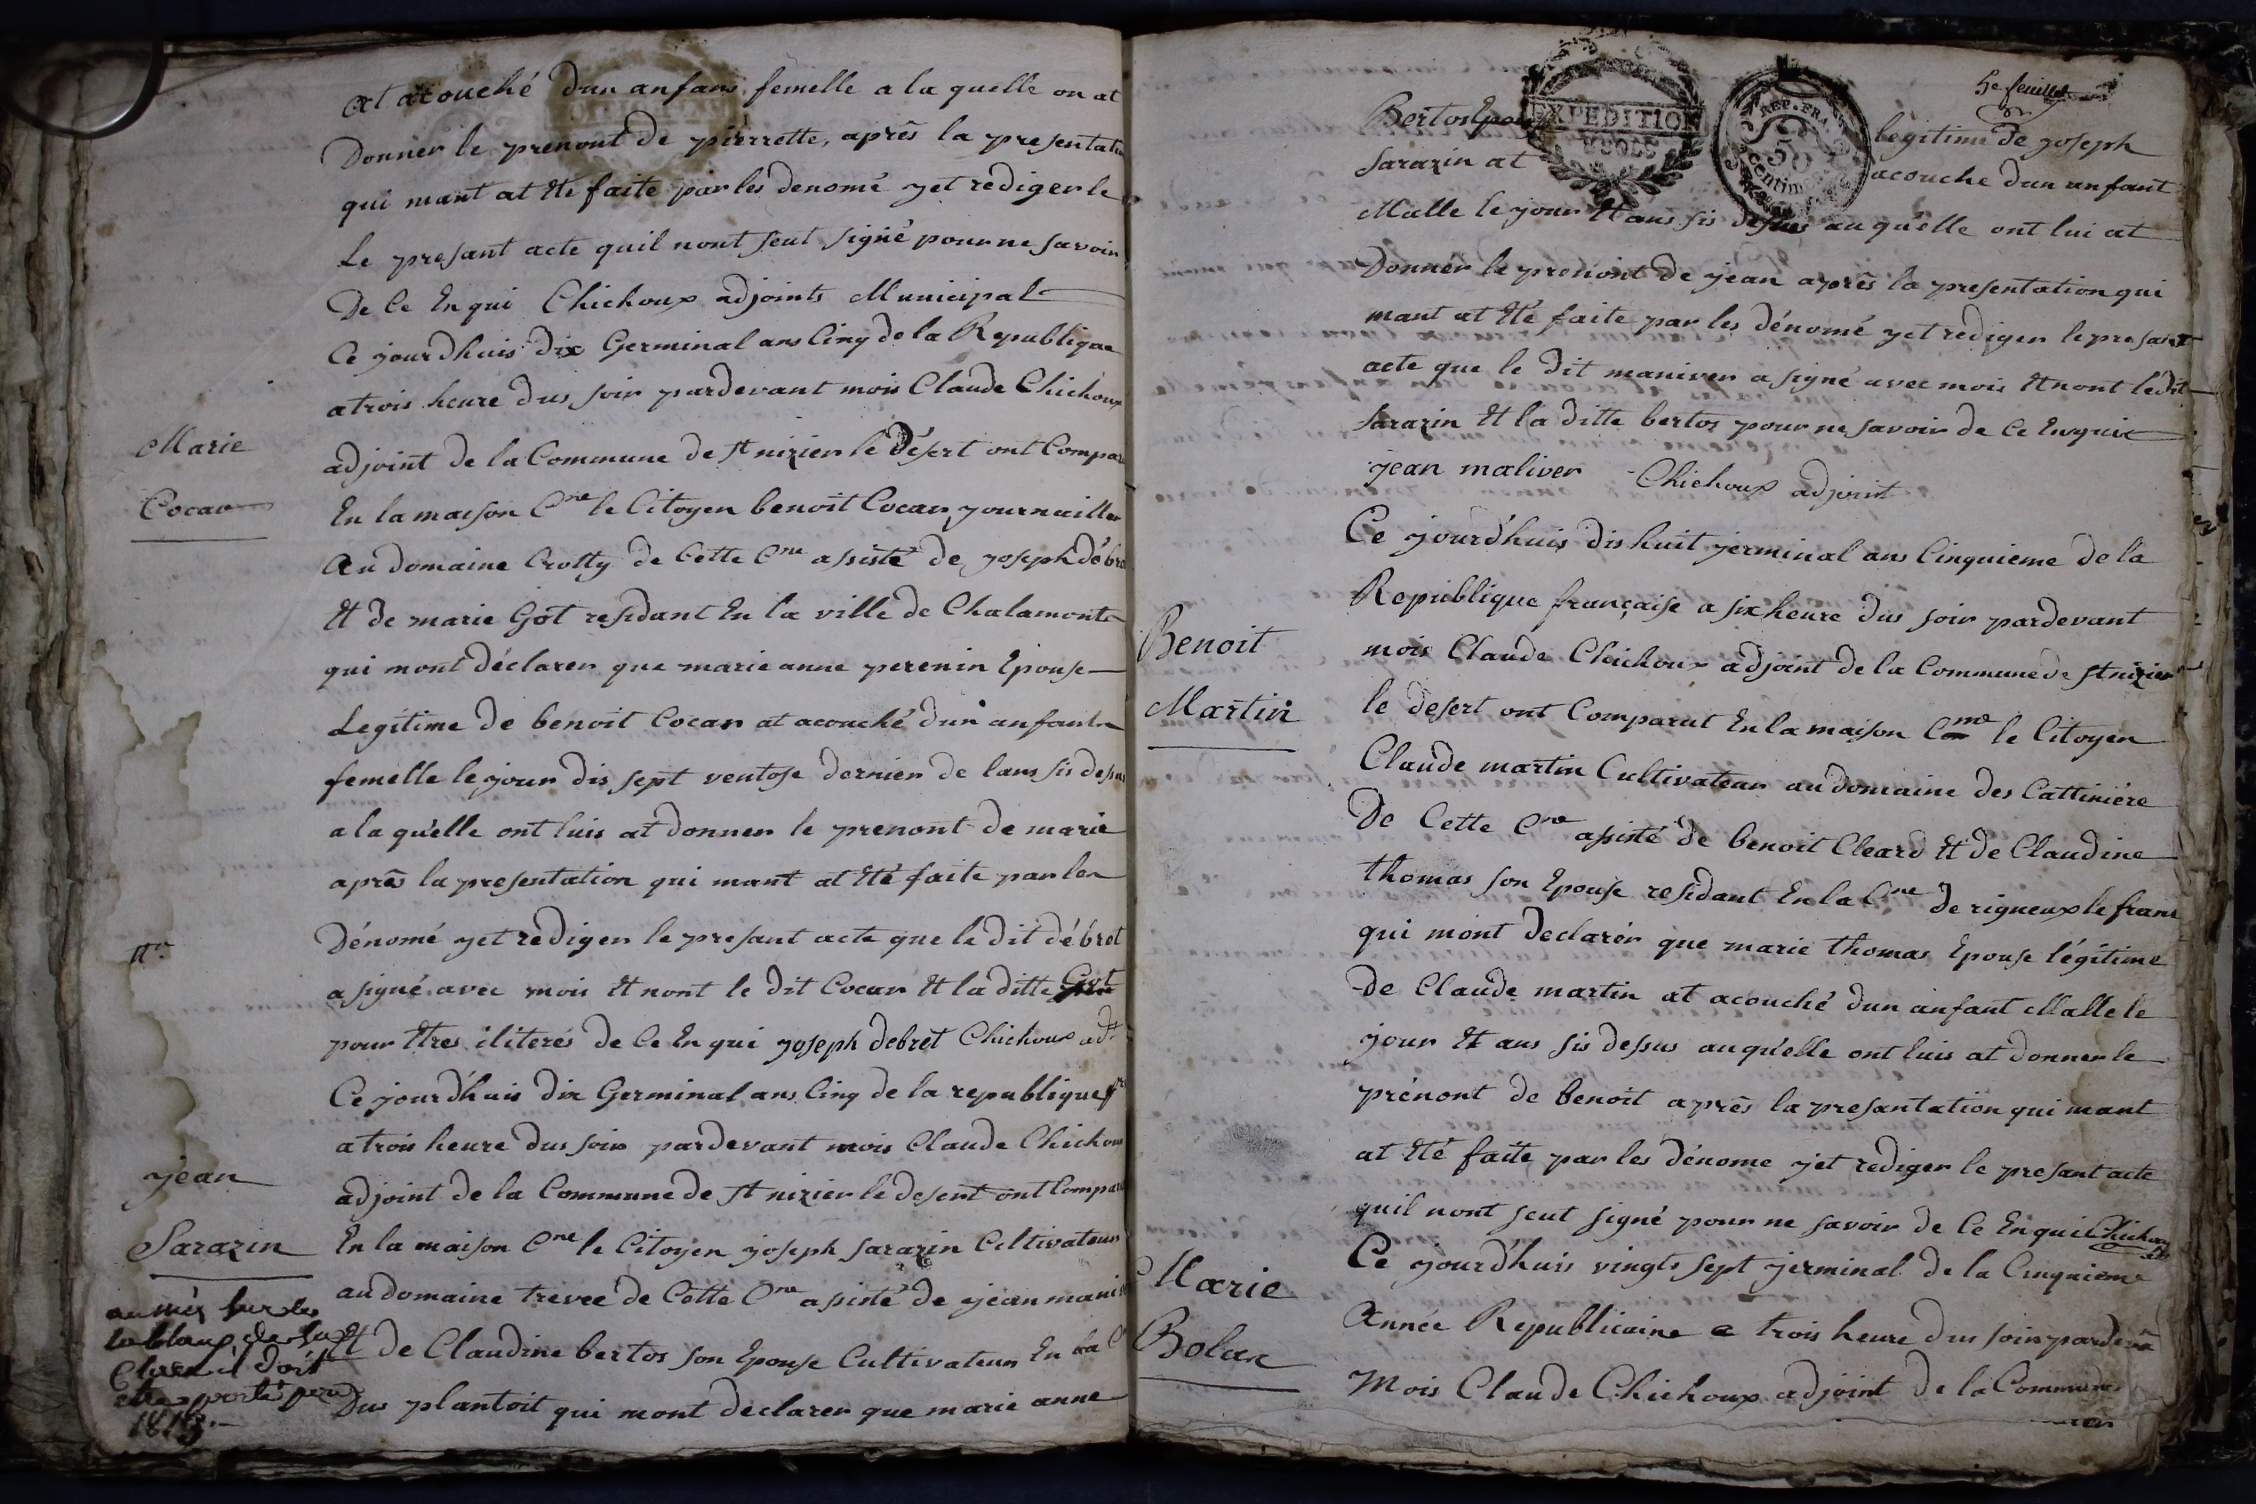 at acouché dun anfans femelle a la quelle on at
Donner le prenont de pierrette, après la presentati
qui mant at Eté faite par les denomé yet rediger le
Le presant acte quil nont seut signé pour ne savoir
De Ce Enqui Chichoux adjoints Municipal
Ce jourdhuis dix Germinal ans Cinq de la Republique
a trois heure dus soir pardevant mois Claude Chichoux
Marie
Cocar
adjoint de la Commune de st nizier le Désert ont Compar
En la maison Cne le Citoyen benoit Cocar journailler
Au domaine Crotty de Cette Cne asisté de joseph débr
Et de marie Got residant En la ville de Chalamont
qui mont déclarer que marie anne perenin Epouse
Legitime de benoit Cocar at acouché dun anfant
femelle le jour dis sept ventose dernier de lans sis desu
a la qu'elle ont luis at donner le prenont de marie
après la presentation qui mant at Eté faite par les
Dénomé yet rediger le presant acte que le dit débret
a signé avec mois Et nont le dit Cocar Et la ditte Got
pour Etres iliterés de Ce En qui joseph debret Chichoux adt
Ce jourd'huis dix Germinal ans Cinq de la republique fr
a trois heure dus soir pardevant mois Claude Chichoux
jean
Sarazin
adjoint de la Commune de st nizier le desert ont Compar
En la maison Cne le Citoyen joseph sarazin Cultivateur
au domaine trevee de Cette Cne asisté de jean maniv
Et de Claudine bertos son Epouse Cultivateur En la C
Dus plantoit qui mont declarer que marie anne
doit
1813
5e feuillet
EXPEDITION
REP. FRA.
50
centimes
Bertos Epou legitime de joseph
Sarazin at acouche dun anfant
Malle le jour Et ans sis desus au qu'elle ont lui at
Donner le prenont de jean après la presentation qui
mant at Eté faite par les dénomé yet rediger le presant
acte que le dit maniver a signé avec mois Et nont le dit
Sarazin Et la ditte bertos pour ne savoir de Ce Enqui
jean maliver Chichoux adjoint
Ce jourd'huis dishuit jerminal ans Cinquieme de la
Republique française a six heure dus soir pardevant
Benoit
Martin
mois Claude Chichoux adjoint de la Commune de st nizier
le desert ont Comparut En la maison Cne le Citoyen
Claude martin Cultivateur au domaine des Cattiniére
De Cette Cne asisté de benoit Cleard Et de Claudine
thomas son Epouse residant En la Cne de rigneux le franc
qui mont Declarér que marie thomas Epouse légitime
de Claude martin at acouché dun anfant Malle le
jour Et ans sis dessus au qu'elle ont luis at donner le
prénont de benoit après la presantation qui mant
at Eté faite par les dénome yet rediger le presant acte
quil nont seut signé pour ne savoir de Ce Enqui Chichoux
Marie
Bolar
Ce jourd'huis vingts sept jerminal de la Cinquieme
Année Republicaine a trois heure dus soir pardeva
Mois Claude Chichoux adjoint de la Commune